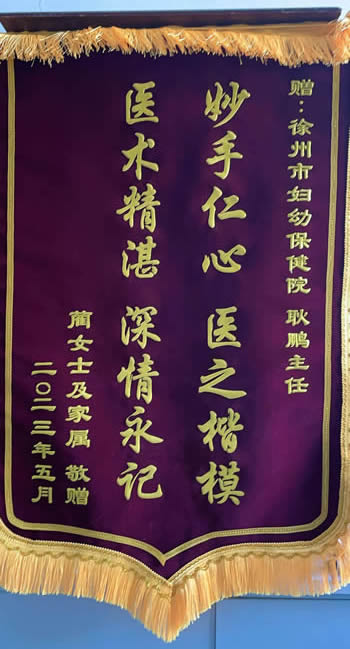 赠：徐州市妇幼保健院 耿鹏主任
妙手仁心 医之楷模
医术精湛 深情永记
蔺女士及家属 敬赠
二〇二三年五月